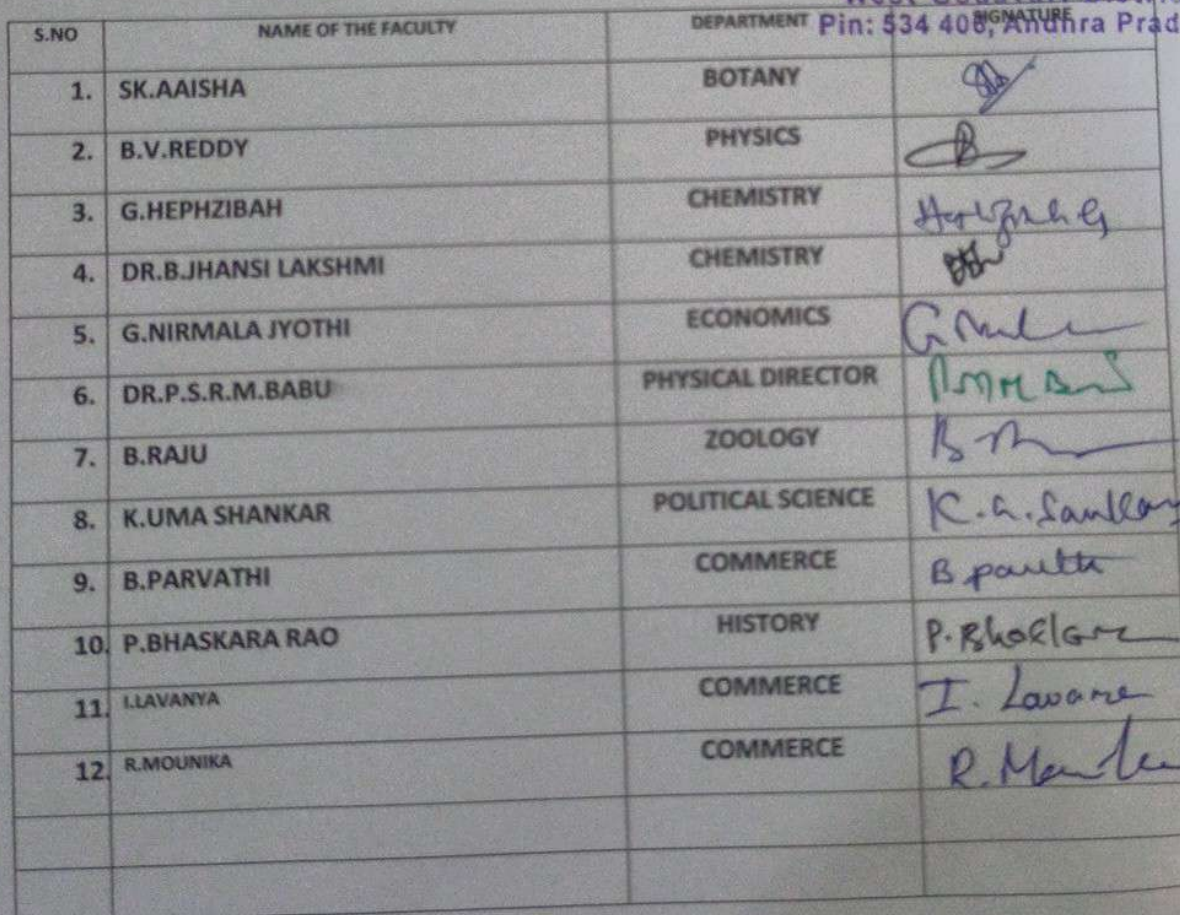 Pin: 534 406, Andhra Prad
S.NO NAME OF THE FACULTY DEPARTMENT SIGNATURE
1. SK.AAISHA BOTANY
2. B.V.REDDY PHYSICS
3. G.HEPHZIBAH CHEMISTRY
4. DR.B.JHANSI LAKSHMI CHEMISTRY
5. G.NIRMALA JYOTHI ECONOMICS
6. DR.P.S.R.M.BABU PHYSICAL DIRECTOR
7. B.RAJU ZOOLOGY
8. K.UMA SHANKAR POLITICAL SCIENCE
9. B.PARVATHI COMMERCE
10. P.BHASKARA RAO HISTORY
11. I.LAVANYA COMMERCE I.
12. R.MOUNIKA COMMERCE